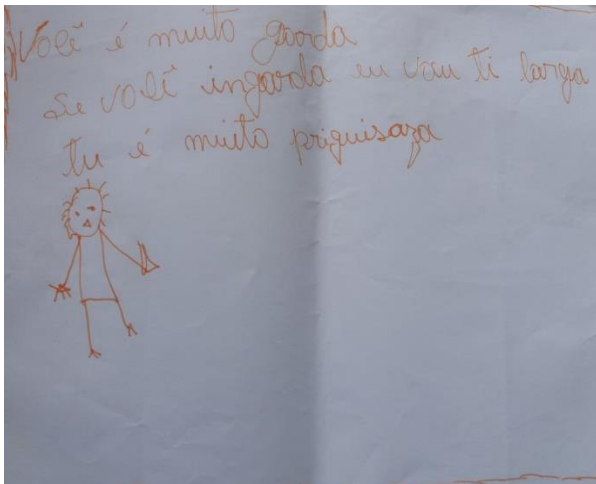 Você é muito gorda
Se você ingorda eu vou ti larga
tu é muito priguisaza